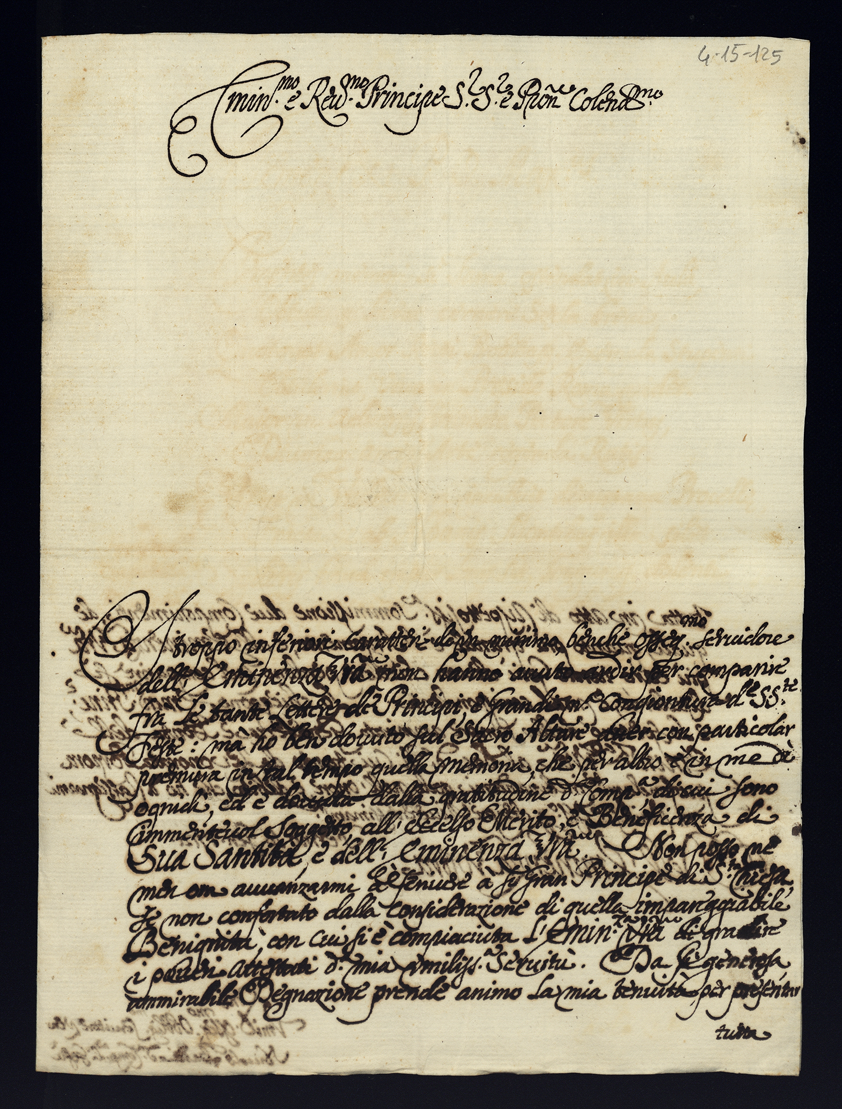 4-15-125
Emin.mo e Reu.mo Principe S.r S.r e Pron.e Colend.mo
troppo inferiori caratteri de un minimo benche osseq.mo seruidore
dell' Eminenza Vra non hanno auuto ardir per comparire
fra le tante Lettere di Principi e Grandi in Congiontura d.e SS.te
Feste: ma ho ben douuto sul Sacro Altare auer con particolar
premura in tal tempo quella memoria, che per altro è in me di
ognudi, ed è douuta dalla gratitudine di cui sono
immeriteuol soggetto all' eccelso Merito, e Beneficenza di
Sua Santità e dell' Eminenza Vra. Non posso ne
men auuanzarmi a scriuere a sì gran Principe di S.ta Chiesa,
se non confortato dalla considerazione di quella impareggiabile
Benignità, con cui si è compiaciuta l' Emin.za Vra di gradire
i poueri attestati d. mia umiliss.a Seruitù. Da sì generosa
ammirabile Degnazione prende animo la mia tenuità per presentar
tutta